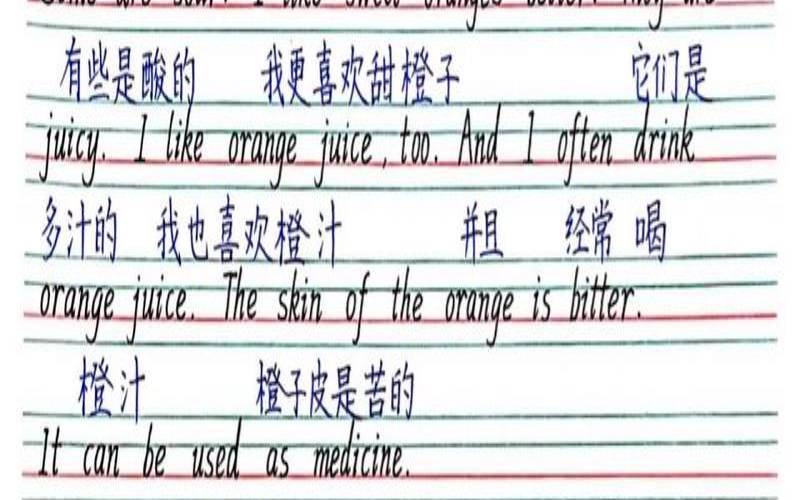 Some are sour. I like sweet oranges better. They are
有些是酸的 我更喜欢甜橙子 它们是
juicy. I like orange juice, too. And I often drink
多汁的 我也喜欢橙汁 并且 经常 喝
orange juice. The skin of the orange is bitter.
橙汁 橙子皮是苦的
It can be used as medicine.